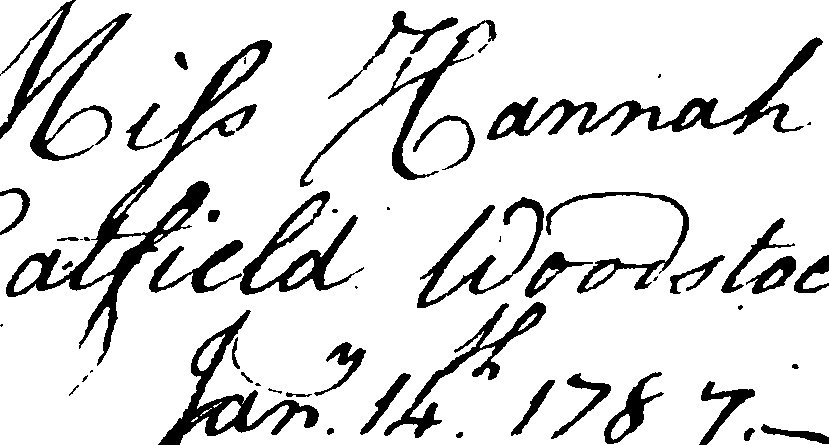 Miſs Hannah
atfield Woodstoc
Jan.y 14.th 1787.—